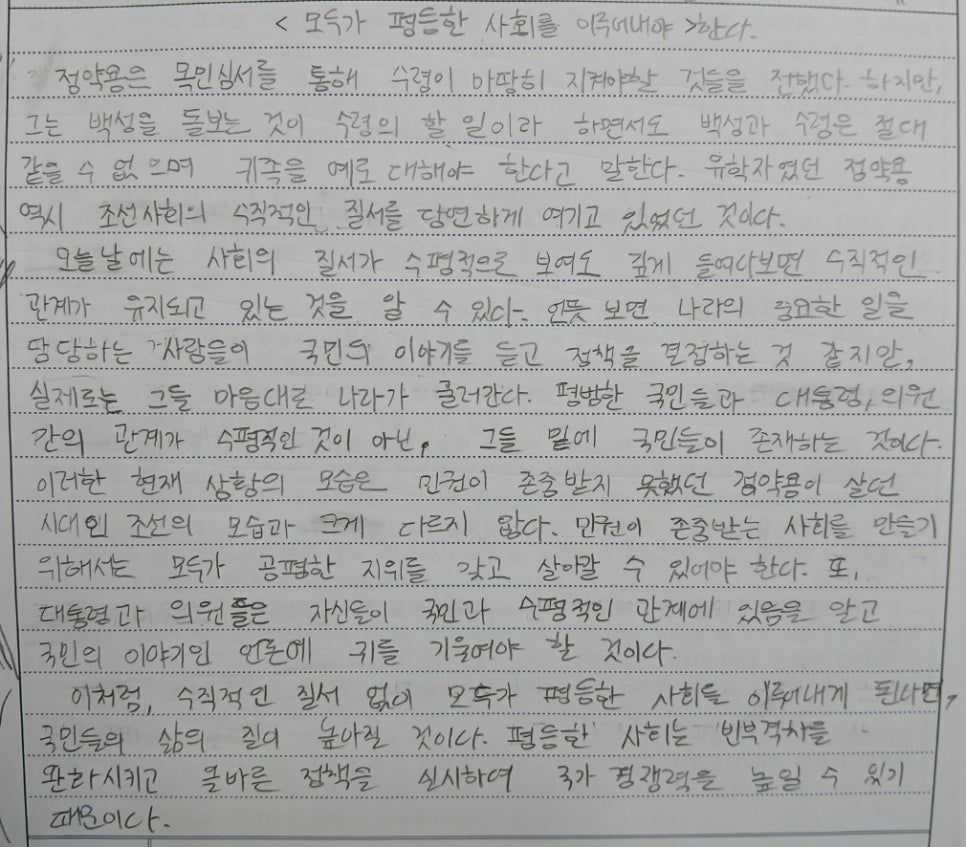 < 모두가 평등한 사회를 이루어내야 >한다.
정약용은 목민심서를 통해 수령이 마땅히 지켜야할 것들을 전했다. 하지만,
그는 백성을 돌보는 것이 수령의 할 일이라 하면서도 백성과 수령은 절대
같을 수 없으며 귀족을 예로 대해야 한다고 말한다. 유학자였던 정약용
역시 조선사회의 수직적인 질서를 당연하게 여기고 있었던 것이다.
오늘날에는 사회의 질서가 수평적으로 보여도 깊게 들여다보면 수직적인
관계가 유지되고 있는 것을 알 수 있다. 언뜻 보면 나라의 중요한 일을
담당하는 사람들이 국민의 이야기를 듣고 정책을 결정하는 것 같지만,
실제로는 그들 마음대로 나라가 흘러간다. 평범한 국민들과 대통령, 의원
간의 관계가 수평적인 것이 아닌, 그들 밑에 국민들이 존재하는 것이다.
이러한 현재 상황의 모습은 민권이 존중받지 못했던 정약용이 살던
시대인 조선의 모습과 크게 다르지 않다. 민권이 존중받는 사회를 만들기
위해서는 모두가 공평한 지위를 갖고 살아갈 수 있어야 한다. 또,
대통령과 의원들은 자신들이 국민과 수평적인 관계에 있음을 알고
국민의 이야기인 언론에 귀를 기울여야 할 것이다.
이처럼, 수직적인 질서 없이 모두가 평등한 사회를 이루어내게 된다면,
국민들의 삶의 질이 높아질 것이다. 평등한 사회는 빈부격차를
완화시키고 올바른 정책을 실시하여 국가 경쟁력을 높일 수 있기
때문이다.